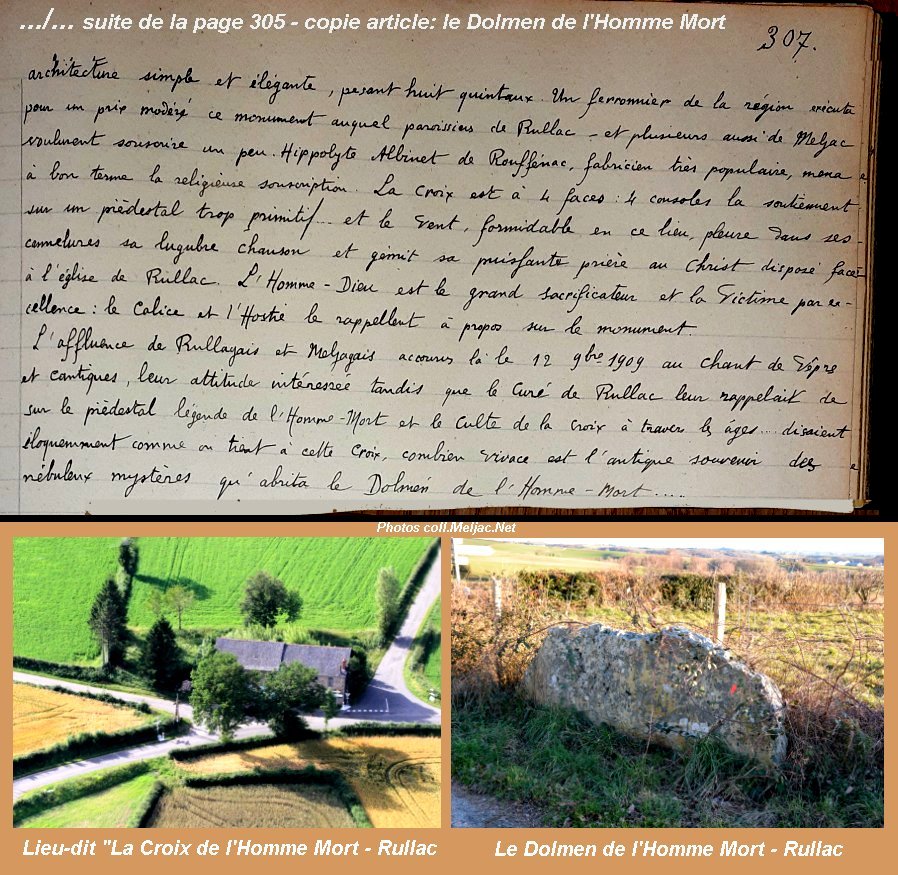 .../... suite de la page 305 - copie article: le Dolmen de l'Homme Mort
307.
architecture simple et élégante, pesant huit quintaux. Un ferronnier de la région exécuta
pour un prix modéré ce monument auquel paroissiens de Rullac - et plusieurs aussi de Meljac
voulurent souscrire un peu. Hippolyte Albinet de Rouffénac, fabricien très populaire, mena
à bon terme la religieuse souscription. La Croix est à 4 faces : 4 consoles la soutiennent
sur un piédestal trop primitif... et le Vent, formidable en ce lieu, pleure dans ses
cannelures sa lugubre chanson et gémit sa puissante prière au Christ disposé face
à l'église de Rullac. L'Homme-Dieu est le grand sacrificateur et la Victime par ex-
cellence : le Calice et l'Hostie le rappellent à propos sur le monument
L'affluence de Rullagais et Meljagais accourus là le 12 9bre 1909 au chant de Vêpres
et cantiques, leur attitude intéressée tandis que le Curé de Rullac leur rappelait de
sur le piédestal légende de l'Homme-Mort et le Culte de la Croix à traver les âges... disaient
éloquemment comme on tient à cette Croix, combien vivace est l'antique souvenir des
nébuleux mystères qu'abrita le Dolmen de l'Homme-Mort....
Photos coll.Meljac.Net
Lieu-dit "La Croix de l'Homme Mort - Rullac
Le Dolmen de l'Homme Mort - Rullac